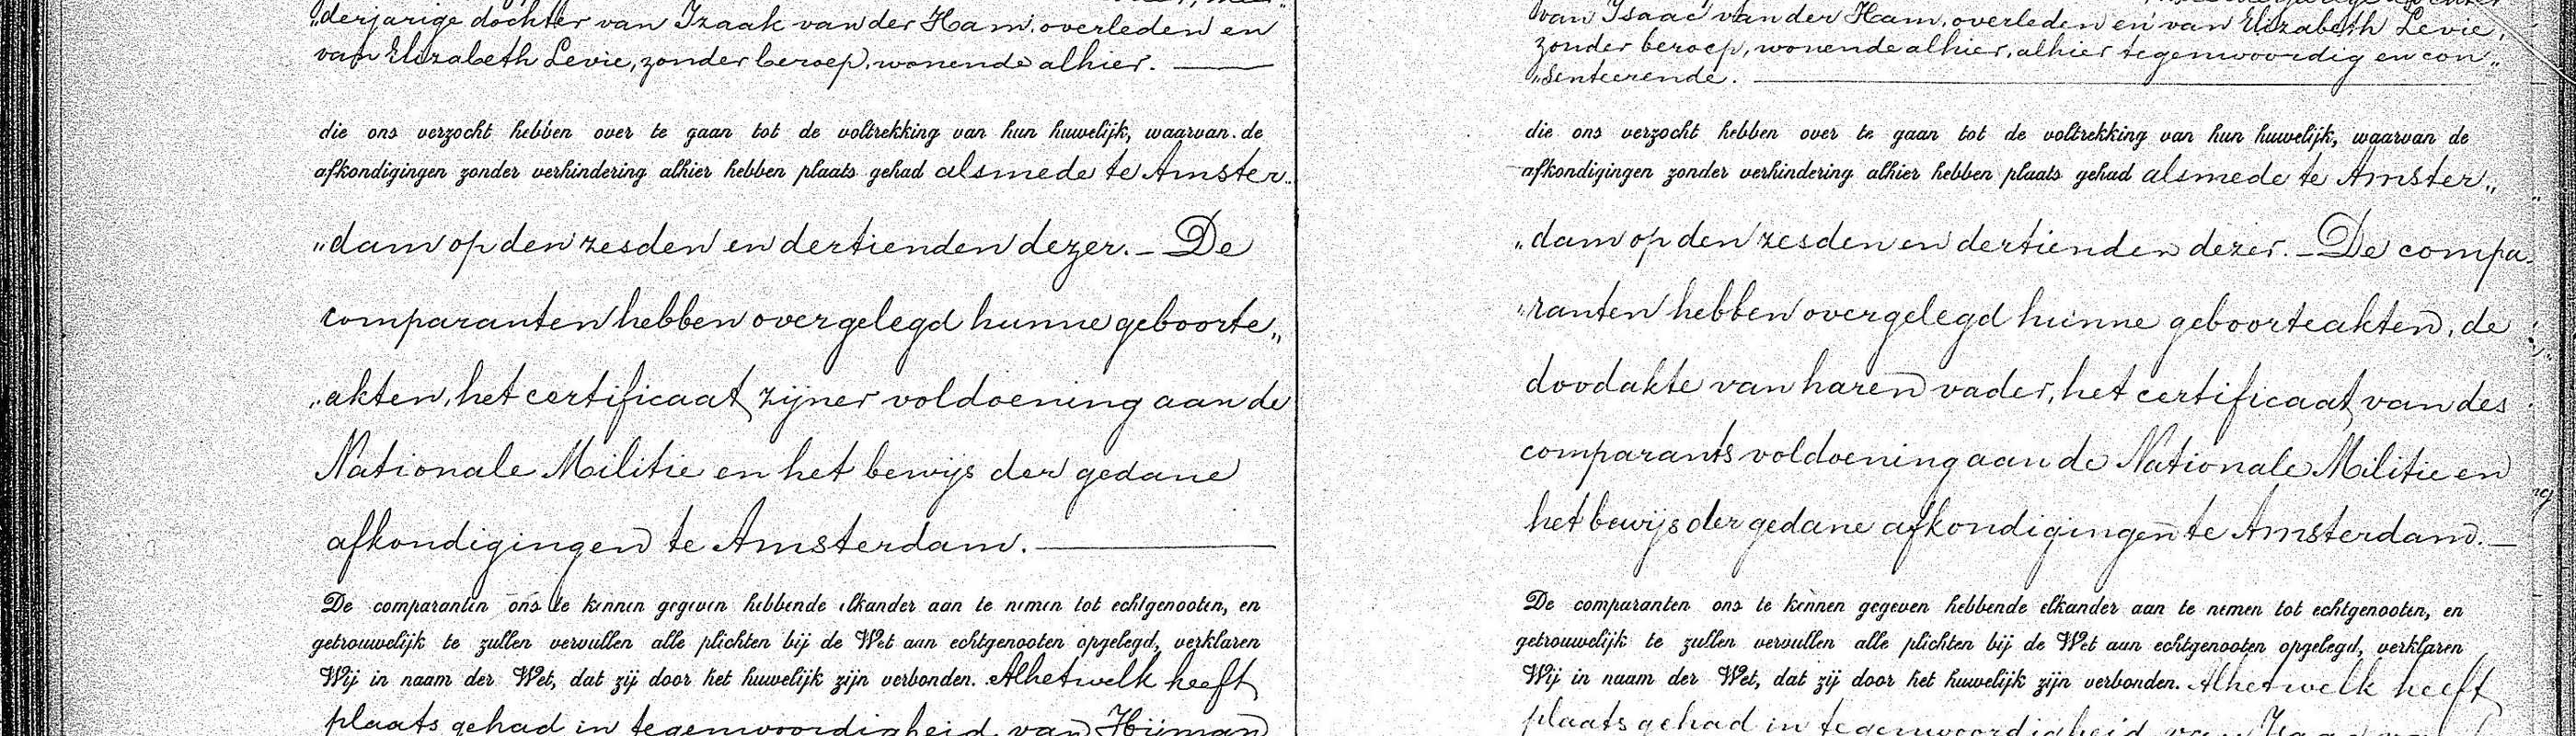 „derjarige dochter van Izaak van der Ham, overleden en
van Elizabeth Levie, zonder beroep, wonende alhier.
die ons verzocht hebben over te gaan tot de voltrekking van hun huwelijk, waarvan de
afkondigingen zonder verhindering alhier hebben plaats gehad alsmede te Amster„
„dam op den zesden en dertienden dezer. – De
comparanten hebben overgelegd hunne geboorte„
„akten, het certificaat zijner voldoening aan de
Nationale Militie en het bewijs der gedane
afkondigingen te Amsterdam.
De comparanten ons te kennen gegeven hebbende elkander aan te nemen tot echtgenooten, en
getrouwelijk te zullen vervullen alle plichten bij de Wet aan echtgenooten opgelegd, verklaren
Wij in naam der Wet, dat zij door het huwelijk zijn verbonden. Alhetwelk heeft
plaats gehad in tegenwoordigheid van Hijman
van Isaac van der Ham, overleden en van Elizabeth Levie,
zonder beroep, wonende alhier, alhier tegenwoordig en con„
„senteerende.
die ons verzocht hebben over te gaan tot de voltrekking van hun huwelijk, waarvan de
afkondigingen zonder verhindering alhier hebben plaats gehad alsmede te Amster„
„dam op den zesden en dertienden dezer. – De compa„
„ranten hebben overgelegd hunne geboorteakten, de
doodakte van haren vader, het certificaat van des
comparants voldoening aan de Nationale Militie en
het bewijs der gedane afkondigingen te Amsterdam. –
De comparanten ons te kennen gegeven hebbende elkander aan te nemen tot echtgenooten, en
getrouwelijk te zullen vervullen alle plichten bij de Wet aan echtgenooten opgelegd, verklaren
Wij in naam der Wet, dat zij door het huwelijk zijn verbonden. Alhetwelk heeft
plaats gehad in tegenwoordigheid van Isaac